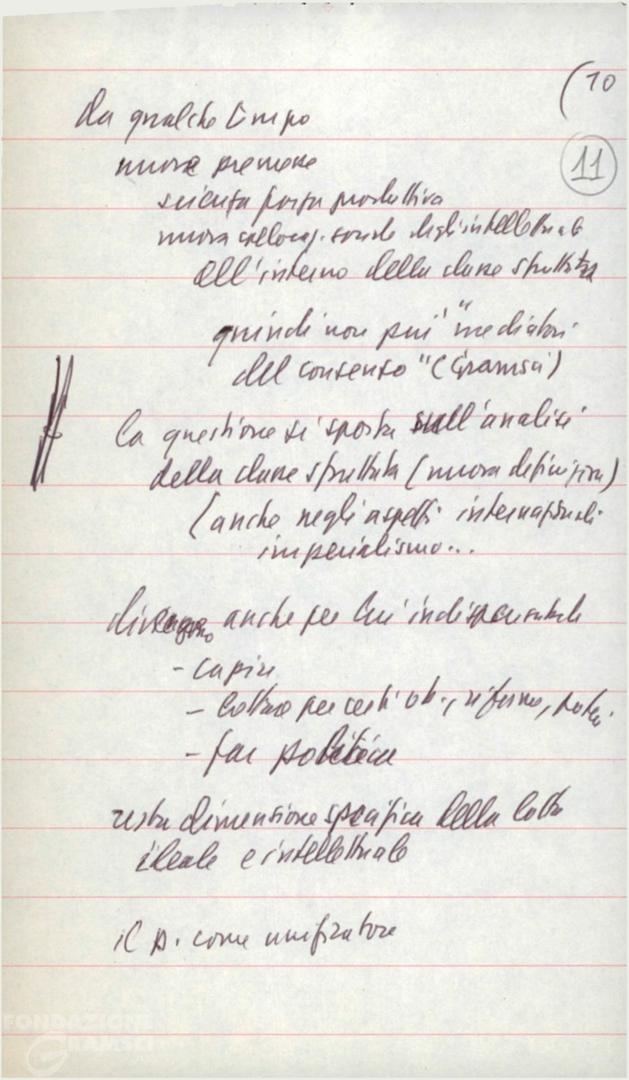 (10
11
da qualche tempo
nuove premesse
scienza forza produttiva
nuova collocaz. sociale degli intellettuali
all'interno della classe sfruttata
quindi non più "mediatori
del consenso" (Gramsci)
la questione si sposta sull'analisi
della classe sfruttata (nuova definizione)
(anche negli aspetti internazionali
imperialismo...
anche per lui indispensabile
- capire
- lottare per certi ob., riforme, potere
- far politica
resta dimensione specifica della lotta
ideale e intellettuale
il p. come unificatore
FONDAZIONE
GRAMSCI